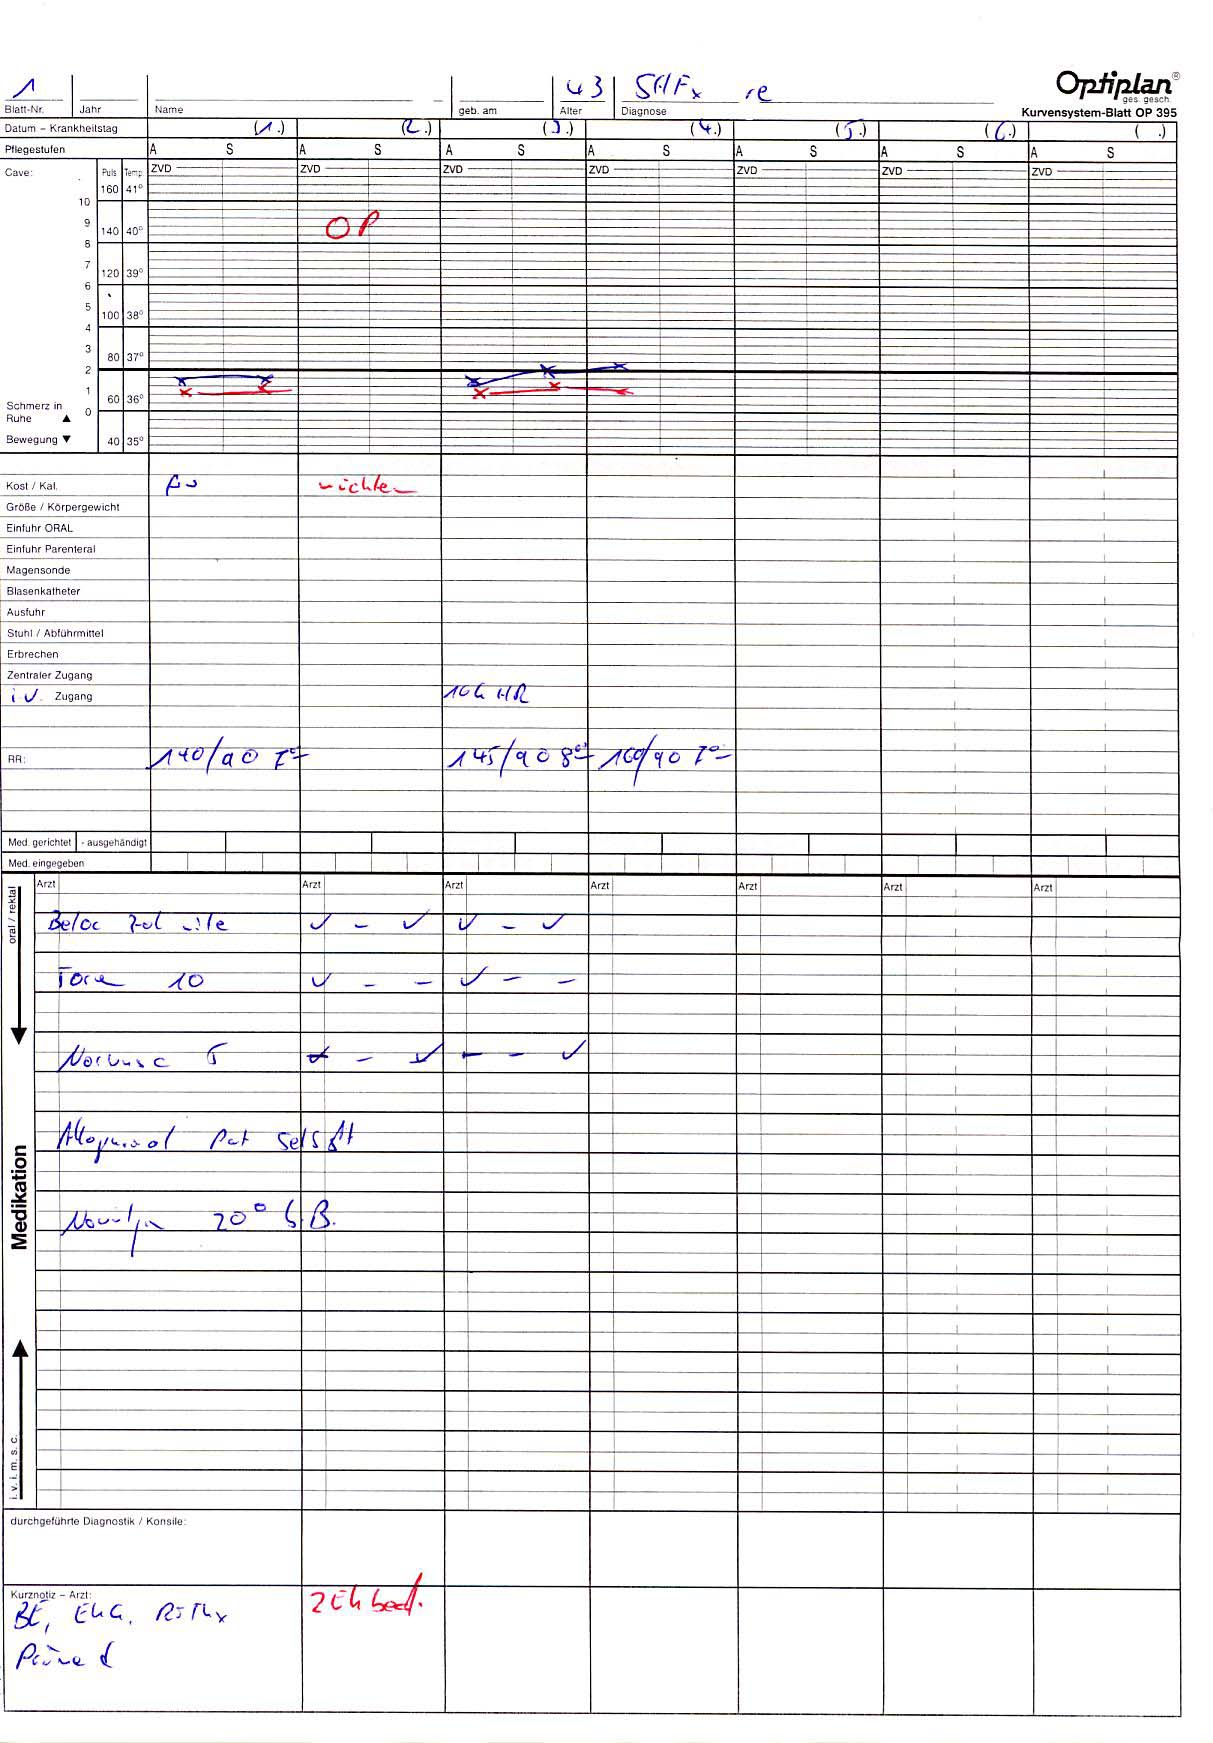 1 43 SHFx re Optiplan®
ges. gesch.
Blatt-Nr. Jahr Name geb. am Alter Diagnose Kurvensystem-Blatt OP 395
Datum – Krankheitstag (1.) (2.) (3.) (4.) (5.) (6.) ( .)
Pflegestufen A S A S A S A S A S A S A S
Cave: Puls Temp. ZVD ZVD ZVD ZVD ZVD ZVD ZVD
160 41°
10
9 140 40° OP
8
7 120 39°
6
5 100 38°
4
3 80 37°
2
1 60 36°
Schmerz in
Ruhe ▲ 0
Bewegung ▼ 40 35°
Kost / Kal. nüchtern
Größe / Körpergewicht
Einfuhr ORAL
Einfuhr Parenteral
Magensonde
Blasenkatheter
Ausfuhr
Stuhl / Abführmittel
Erbrechen
Zentraler Zugang
i.v. Zugang HR
RR: 140/90 7°° 145/90 8°° 160/90 7°°
Med. gerichtet - ausgehändigt
Med. eingegeben
oral / rektal
Arzt Arzt Arzt Arzt Arzt Arzt Arzt
Beloc Zok mite ✓ – ✓ ✓ – ✓
Torem 10 ✓ – – ✓ – –
Norvasc 5 – ✓ – – ✓
Allopurinol Pat selbst
Novalgin 20° b.B.
Medikation
i.v. i.m. s.c.
durchgeführte Diagnostik / Konsile:
Kurznotiz – Arzt:
BE, EKG, RöThx 2 EK bed.
Präme